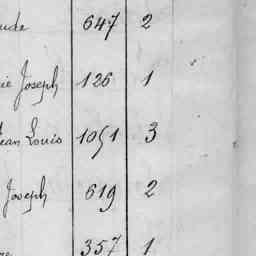 ude 647 2
ie Joseph 126 1
Jean Louis 1051 3
Joseph 619 2
357 1